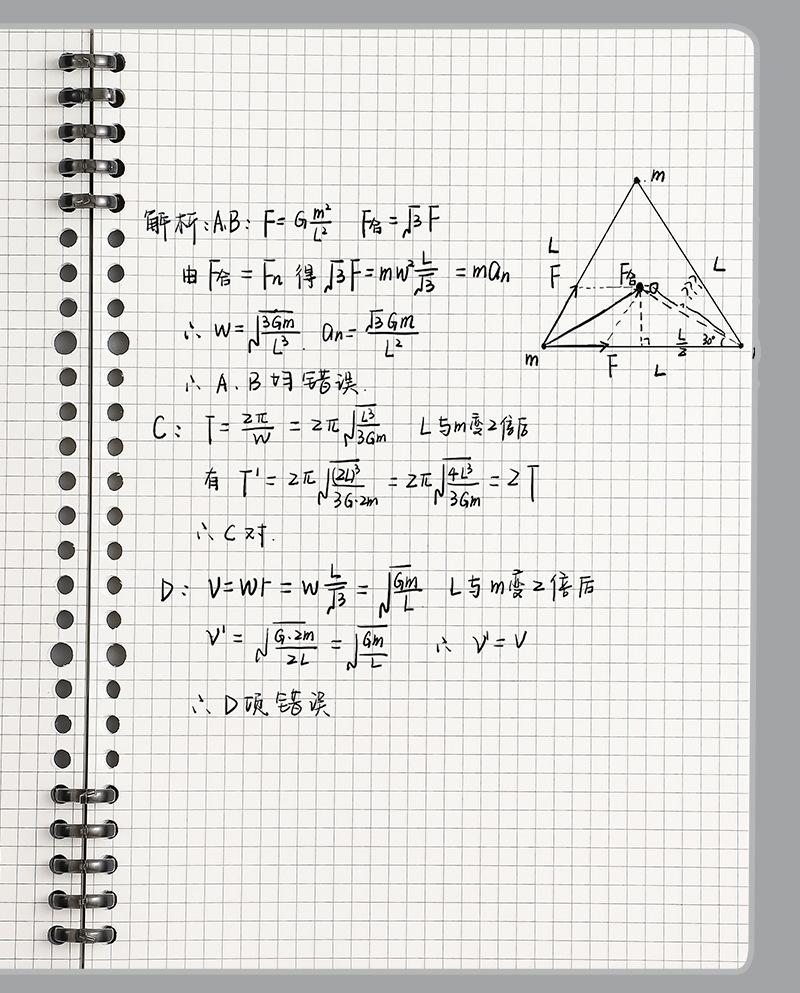 解析:A.B: F=G m²/L² F合=√3F
由F合=Fn 得 √3F=mw² L/√3 =man
∴ w=√(3Gm/L³) . an=√3Gm/L²
∴ A、B均错误.
C: T=2π/w =2π√(L³/3Gm) L与m变2倍后
有 T'=2π√((2L)³/3G·2m) =2π√(4L³/3Gm) =2T
∴ C对.
D: V=wr=w L/√3 =√(Gm/L) L与m变2倍后
V'=√(G·2m/2L) =√(Gm/L) ∴ V'=V
∴ D项错误
m
L
L
F
F合
???
L/2
30°
m
F
L